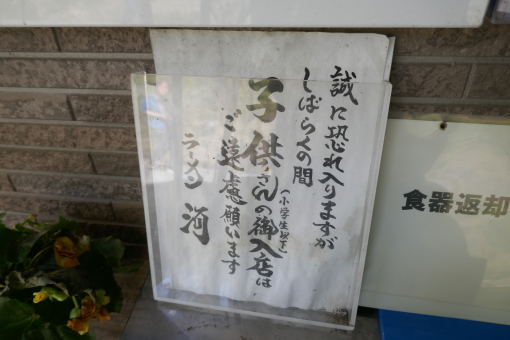 誠に恐れ入りますが
しばらくの間
子供さんの御入店は
(小学生以下)
ご遠慮願います
ラーメン 河
食器返却